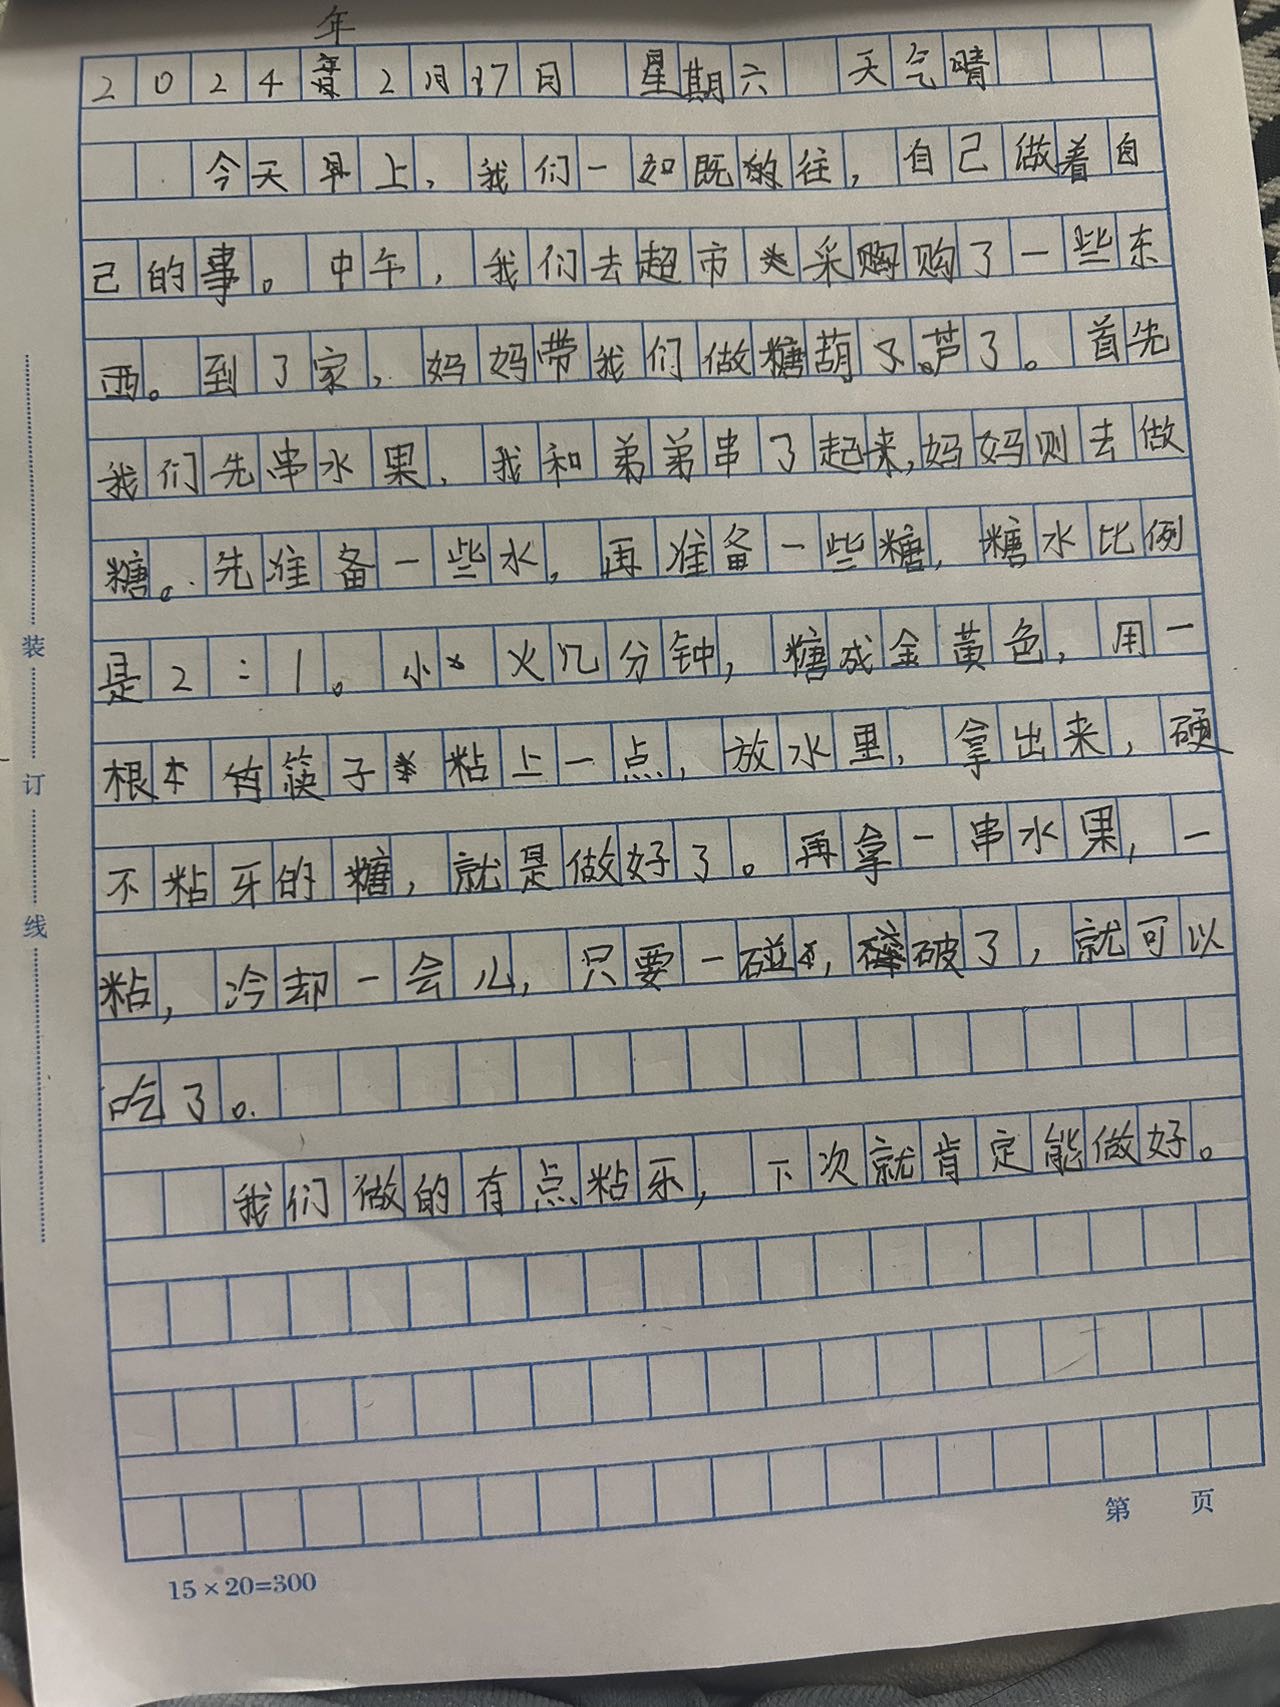 年
2024年2月17日 星期六 天气晴
今天早上，我们一如既的往，自己做着自
己的事。中午，我们去超市采购了一些东
西。到了家，妈妈带我们做糖葫芦了。首先
我们先串水果，我和弟弟串了起来，妈妈则去做
糖。先准备一些水，再准备一些糖，糖水比例
是2：1。小火几分钟，糖成金黄色，用一
根本竹筷子粘上一点，放水里，拿出来，硬
不粘牙的糖，就是做好了。再拿一串水果，一
粘，冷却一会儿，只要一碰，破了，就可以
吃了。
我们做的有点粘乐，下次就肯定能做好。
装
订
线
第 页
15×20=300